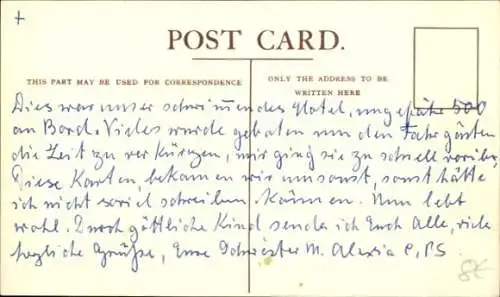 +
POST CARD.
THIS PART MAY BE USED FOR CORRESPONDENCE
ONLY THE ADDRESS TO BE
WRITTEN HERE
Dies war unser schwimmendes Hotel, ungefähr 500
an Bord. Vieles wurde geboten um den Fahrgästen
die Zeit zu verkürzen, mir ging sie zu schnell vorüber.
Diese Karten, bekamen wir umsonst, sonst hätte
ich nicht soviel schreiben können. Nun lebt
wohl. Durch göttliche Kind sende ich Euch Alle, viele
herzliche Grüße, Eure Schwester M. Alexia C.PS.
8€